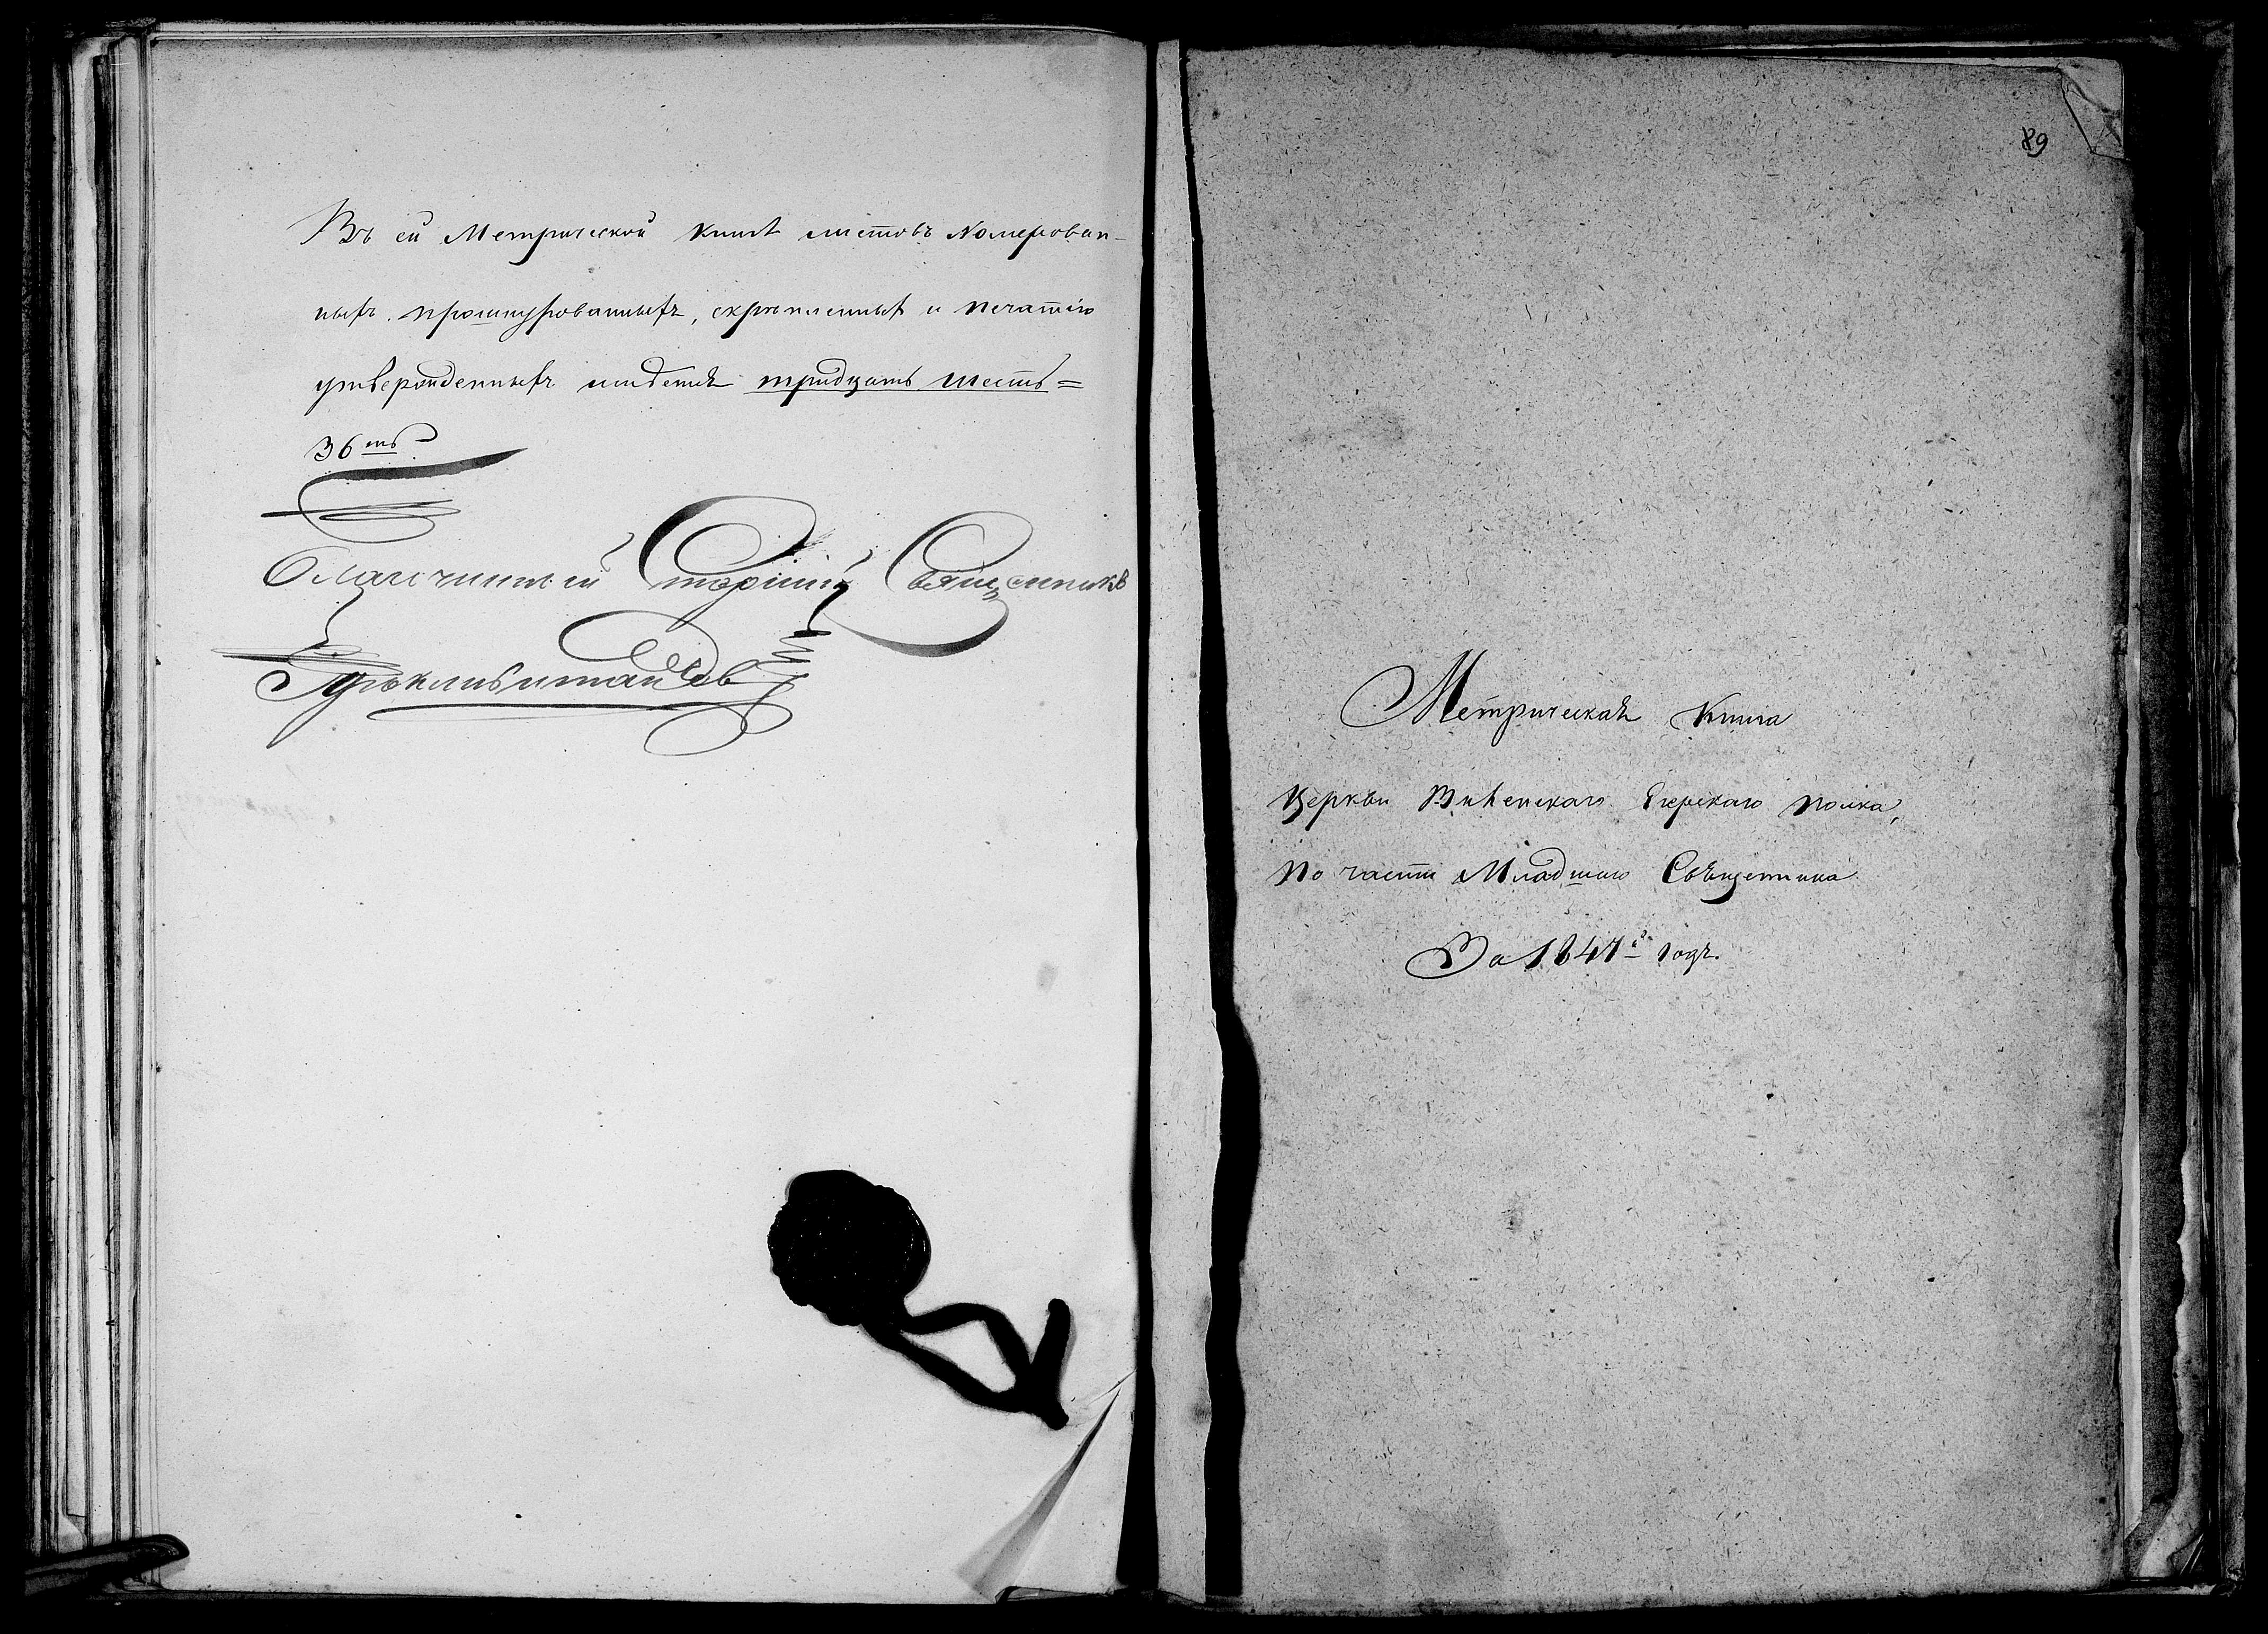 Въ сей Метрической книгѣ листовъ Номерован-
ныхъ прошнурованныхъ, скрѣпленныхъ и печатью
утвержденныхъ имѣется тридцать шесть =
36ть
Благочинный Старшій Священникъ
89
Метрическая Книга
Церкви Виленскаго Егерскаго полка,
по части Младшаго Священника
За 1847й годъ.